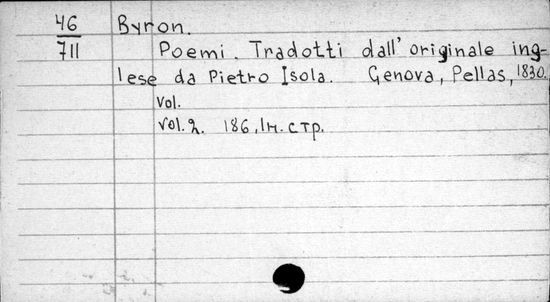 46 Byron.
711 Poemi. Tradotti dall' originale ing-
lese da Pietro Isola. Genova, Pellas, 1830.
vol.
vol. 2. 186, 1н. стр.